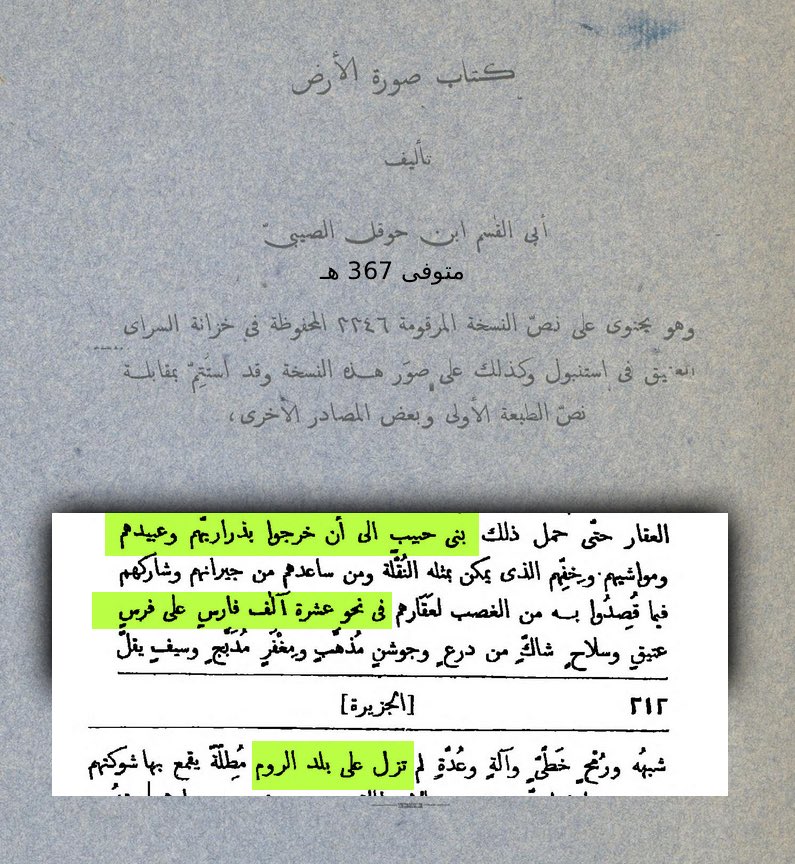 كتاب صورة الأرض
تأليف
أبى القسم ابن حوقل النصيبىّ
متوفى 367 هـ
وهو يحتوى على نصّ النسخة المرقومة ٢٢٤٦ المحفوظة فى خزانة السراى
العتيق فى استنبول وكذلك على صوَر هذه النسخة وقد استُتِمّ بمقابلة
نصّ الطبعة الأولى وبعض المصادر الأخرى،
العقار حتّى حمل ذلك بنى حبيب الى أن خرجوا بذراريّهم وعبيدهم
ومواشيهم وخِفّهم الذى يمكن بمثله النُقلة ومن ساعدهم من جيرانهم وشاركهم
فيا قُصِدُوا به من الغصب لعقارهم فى نحو عشرة آلف فارس على فرس
عتيق وسلاح شاكّ من درع وجوشنٍ مُذهّبٍ ومِغْفَرٍ مُدَبَّجٍ وسيفٍ يقلّ
٢١٢ [الجزيرة]
شبهُه ورُمْحٍ خَطّىٍّ وآلةٍ وعُدّةٍ لم تزل على بلد الروم مُطِلّةً يقمع بها شوكتهم